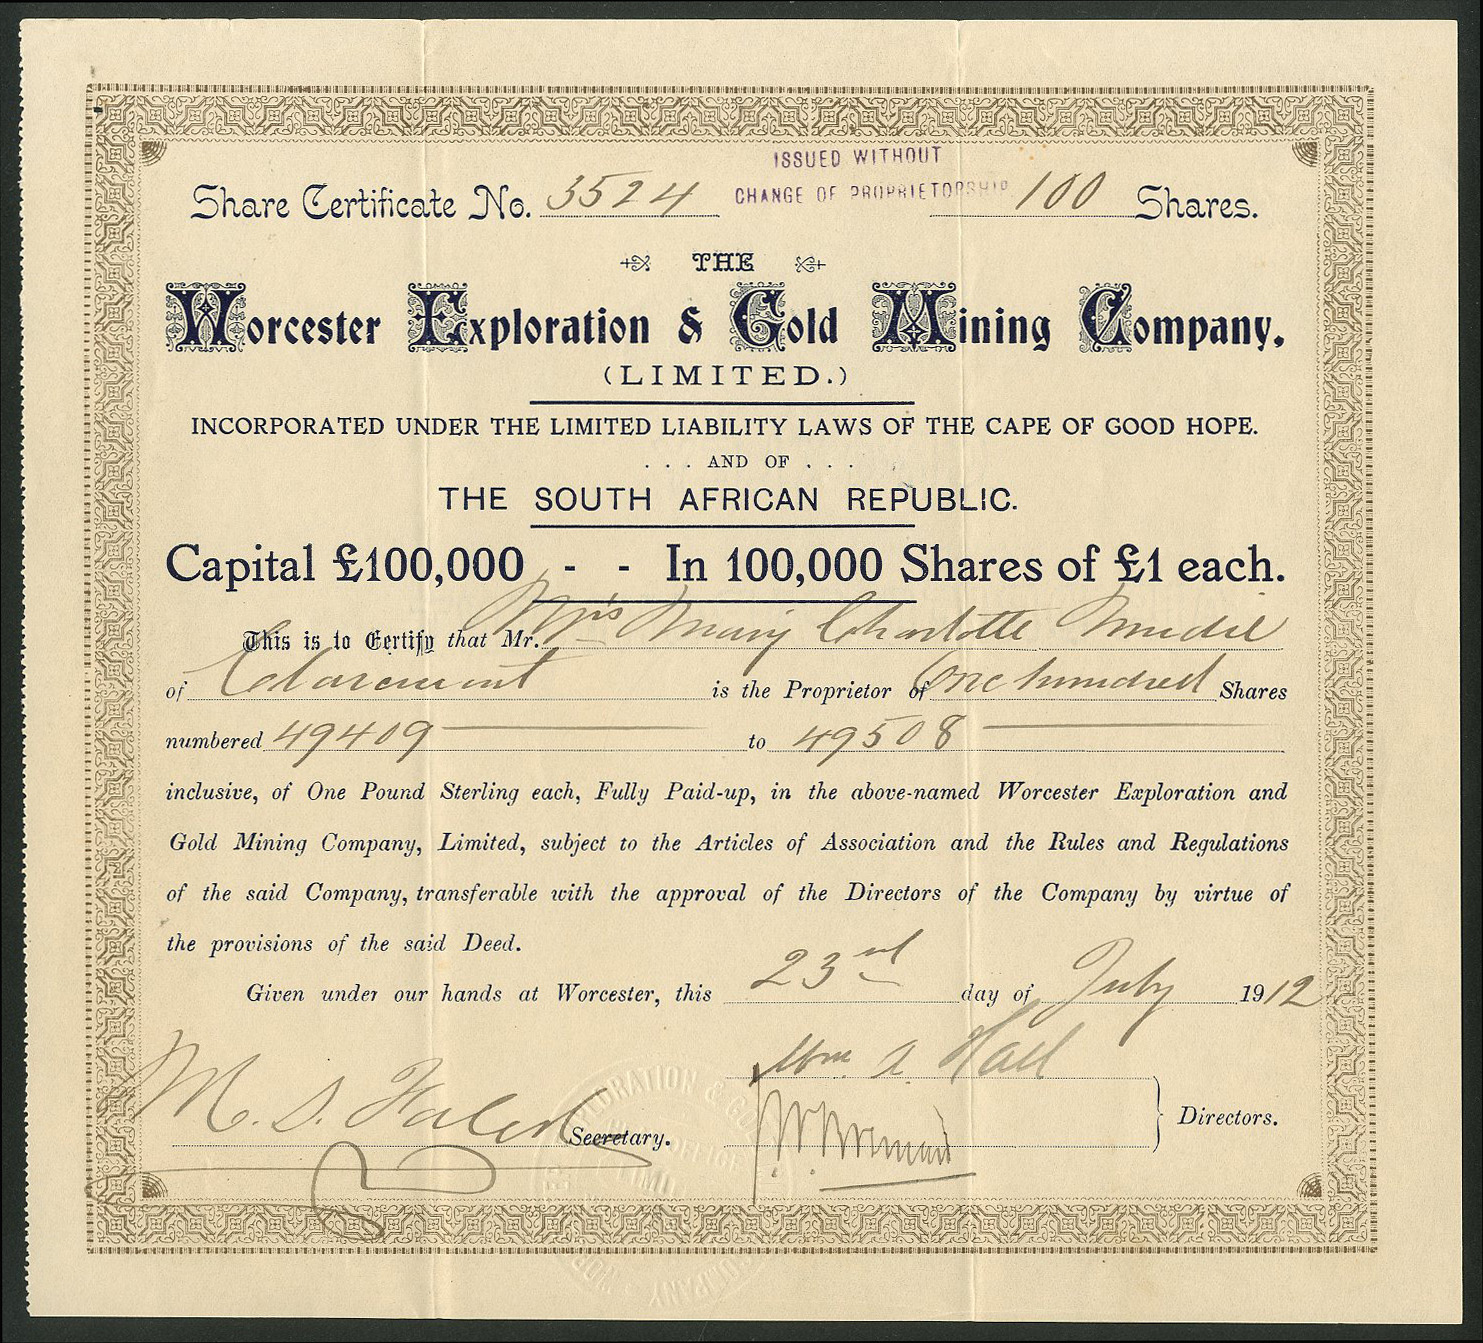 ISSUED WITHOUT
CHANGE OF PROPRIETORSHIP
Share Certificate No. 3524 100 Shares.
THE
Worcester Exploration & Gold Mining Company,
(LIMITED.)
INCORPORATED UNDER THE LIMITED LIABILITY LAWS OF THE CAPE OF GOOD HOPE.
... AND OF ...
THE SOUTH AFRICAN REPUBLIC.
Capital £100,000 - - In 100,000 Shares of £1 each.
This is to Certify that Mr. Mrs Mary Charlotte Mudie
of Claremont is the Proprietor of One hundred Shares
numbered 49409 to 49508
inclusive, of One Pound Sterling each, Fully Paid-up, in the above-named Worcester Exploration and
Gold Mining Company, Limited, subject to the Articles of Association and the Rules and Regulations
of the said Company, transferable with the approval of the Directors of the Company by virtue of
the provisions of the said Deed.
Given under our hands at Worcester, this 23rd day of July 1912
Wm. A. Hall
M. S. Secretary.
Directors.
EXPLORATION & GOLD
COMPANY